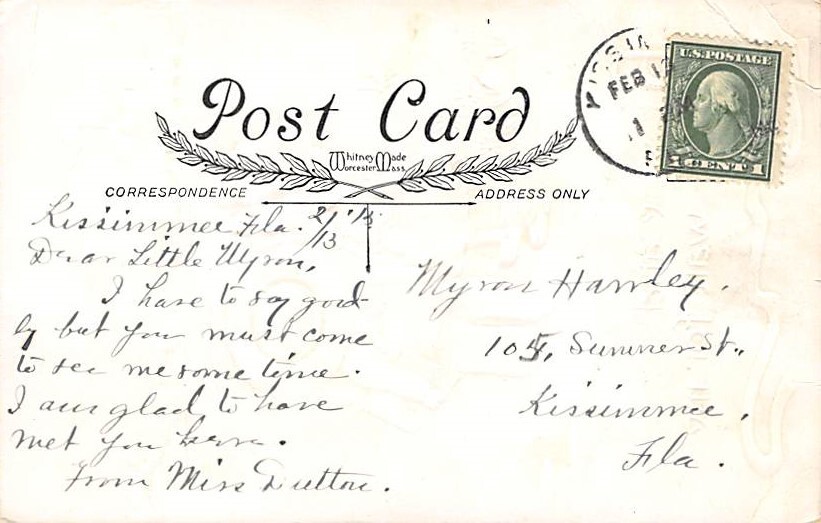 Post Card
Whitney Made
Worcester Mass
CORRESPONDENCE
ADDRESS ONLY
KISSIM
FEB 1
1
U.S.POSTAGE
1 CENT 1
Kissimmee Fla. 2/13 '15
Dear Little Myron,
I have to say good-
by but you must come
to see me some time.
I am glad to have
met you here.
From Miss Dutton.
Myron Hawley.
105, Summer St.,
Kissimmee,
Fla.